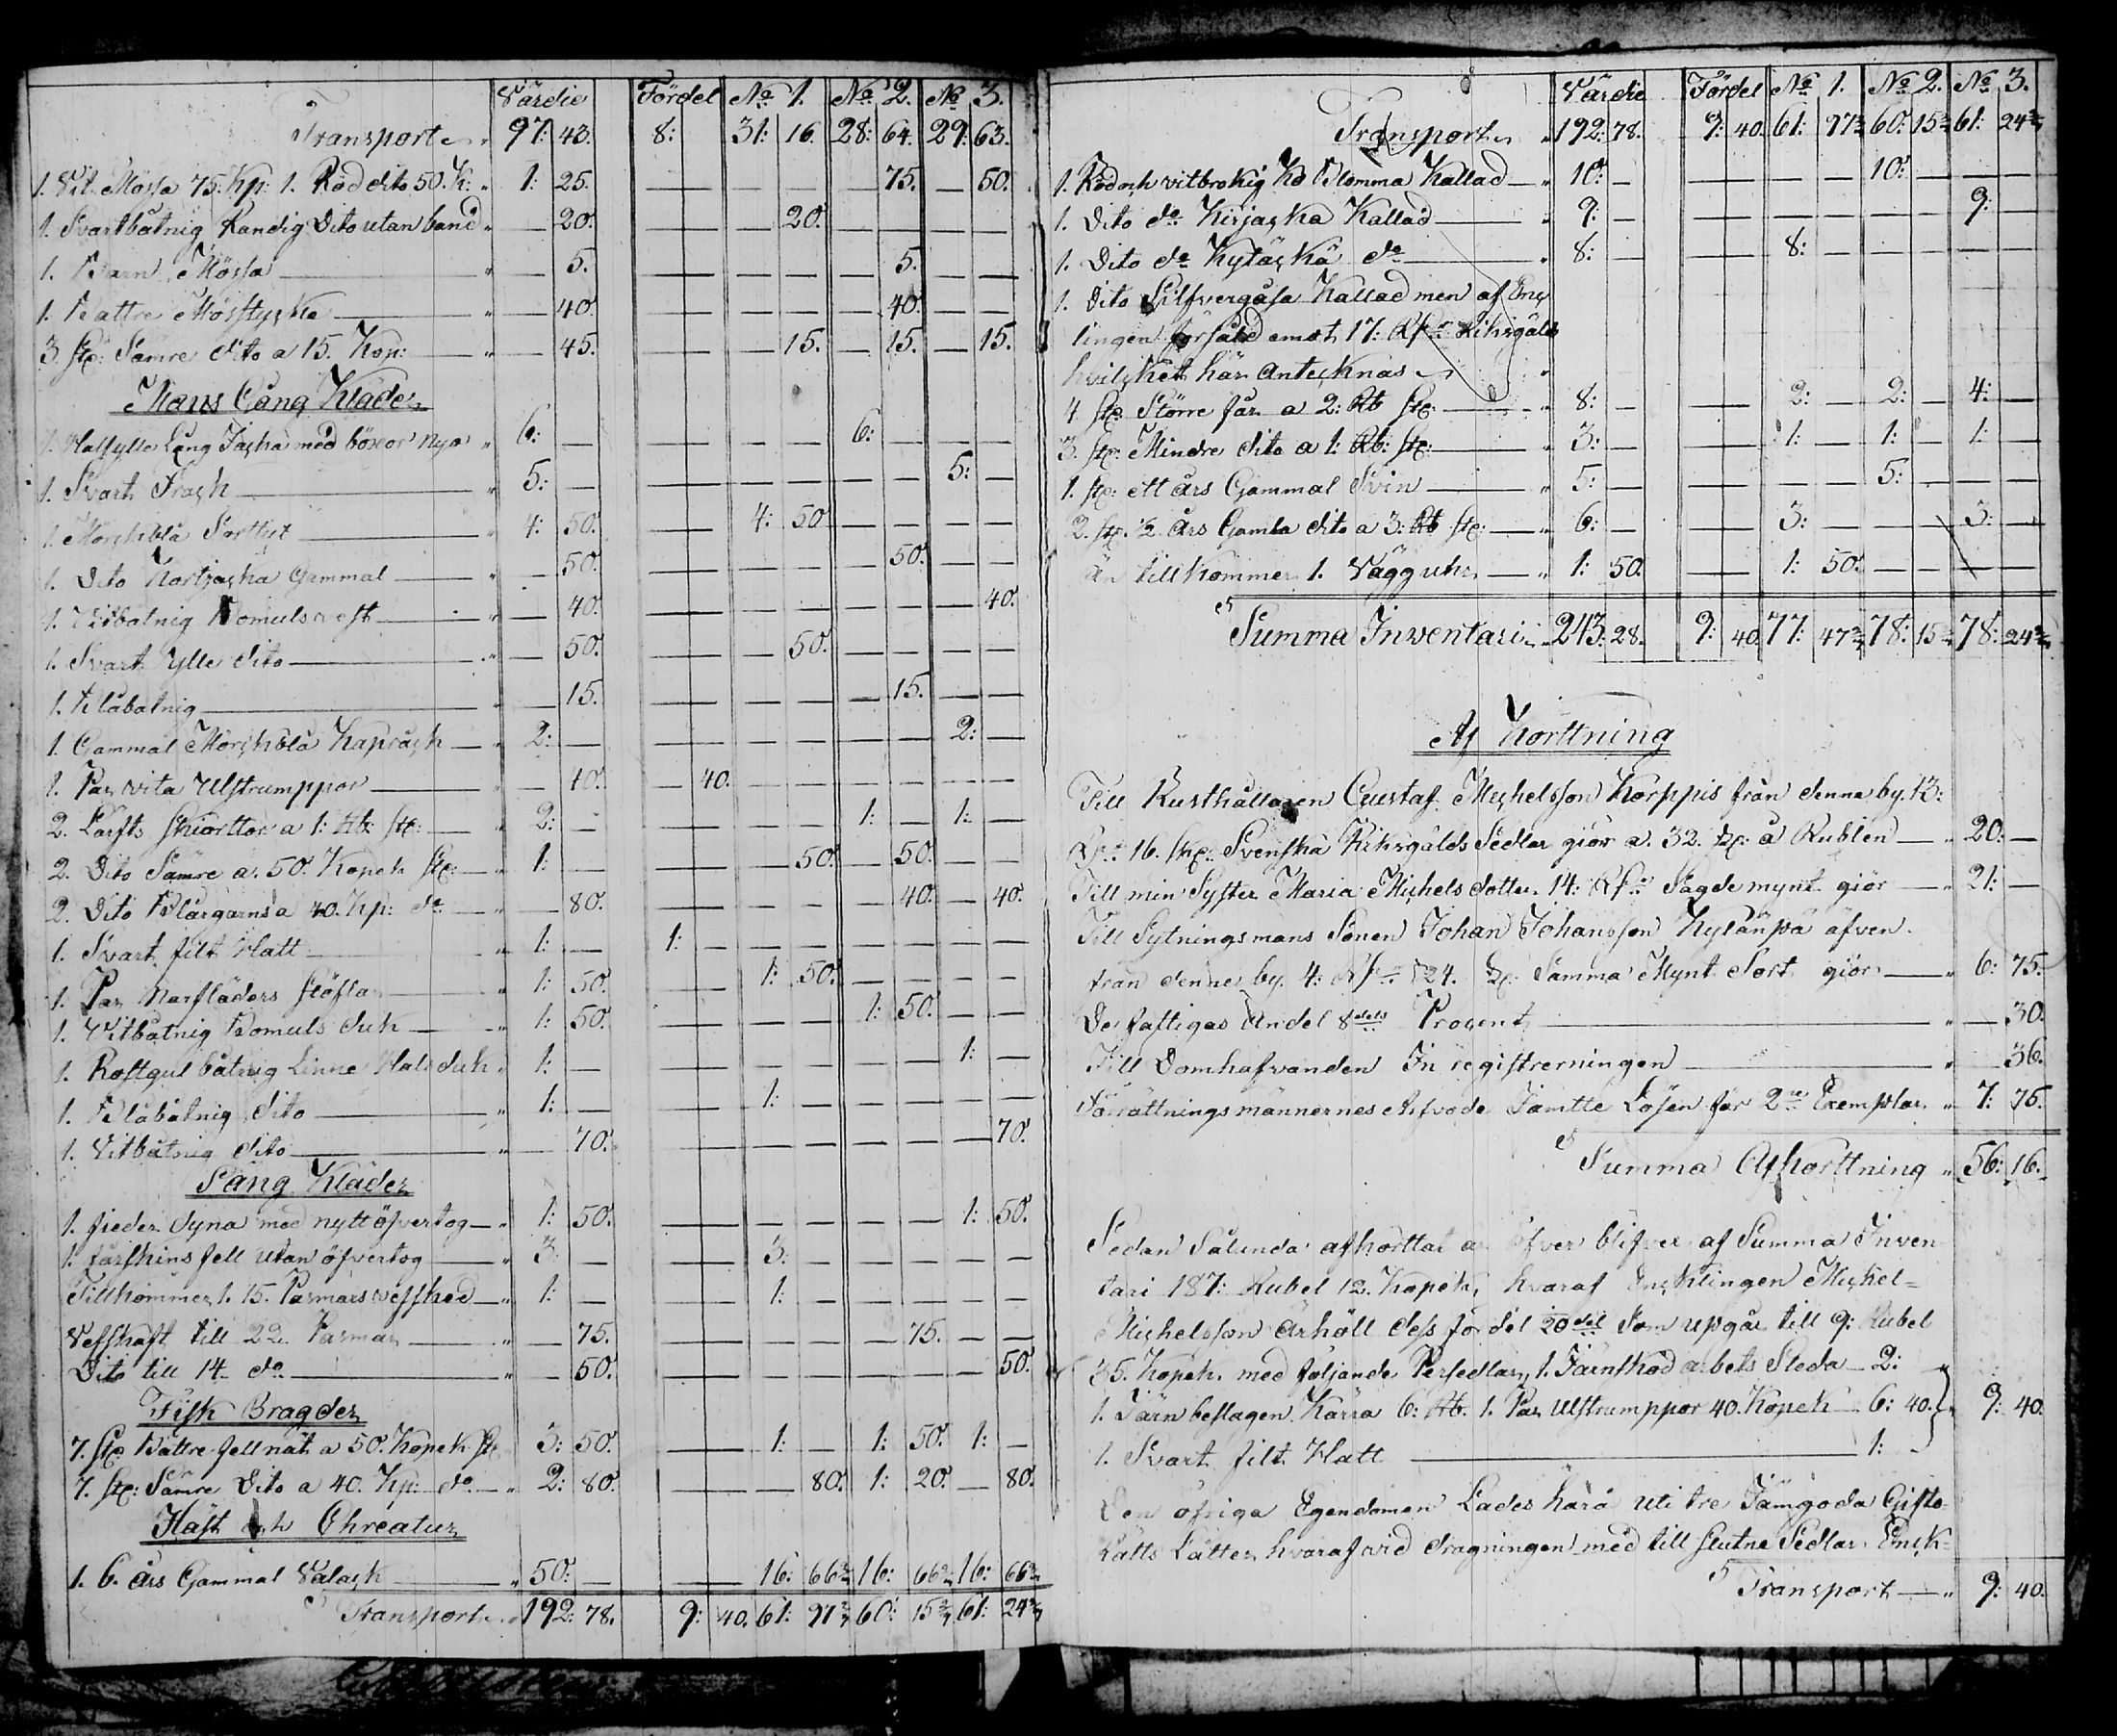 Värdie Fördel No 1. No 2. No 3.
Transport 97: 43. 8: 31: 16. 28: 64. 29: 63.
1. Vit Mössa 75. Kp: 1. Röd dito 50. K: 1: 25. — — — — 75. — 50.
1. Svartbåtnig Randig Dito utan band — 20. — — 20. — — — —
1. Barn Mössa — 5. — — — — 5. — —
1. Battre Mösstycke — 40. — — — — 40. — —
3 st: Sämre dito a 15. Kop: — 45. — — 15. — 15. — 15.
Mans Gång Kläder
1. Halfylle Lång Jacka med böxor Nya 6: — — — — 6: — — —
1. Svart Frack 5: — — — — — — 5: —
1. Mörckblå Sorttut 4: 50. — 4: 50 — — — —
1. Dito Kortjacka Gammal — 50. — — — — 50. — —
1. Vitbatnig Bomuls vest — 40. — — — — — — 40.
1. Svart Ylle dito — 50. — — 50. — — — —
1. blåbatnig — 15. — — — — 15. — —
1. Gammal Mörckblå Kapråck 2: — — — — — — 2: —
1. Par vita Ulstrumppor — 40. — 40. — — — — — —
2. Lärfts Skiorttor a 1: Rb: st: 2: — — — — 1: — 1: —
2. Dito Sämre a. 50. Kopek st: 1: — — — 50. — 50. — —
2. Dito Blårgarns a 40. Kp: do — 80. — — — — 40. — 40.
1. Svart filt Hatt 1: — 1: — — — — — — —
1. Par Narfläders Stöflar 1: 50. — 1: 50. — — — —
1. Vitbåtnig Bomuls duk 1: 50. — — — 1: 50. — —
1. Rostgul båtnig Linne Halsduk 1: — — — — — — 1: —
1. Blåbåtnig dito 1: — — 1: — — — — —
1. Vitbåtnig dito — 70. — — — — — — 70.
Säng Kläder
1. fieder dyna med nytt öfvertog 1: 50. — — — — — 1: 50.
1. fårskins fell utan öfvertog 3: — — 3: — — — — —
Tillkommer 1. 15. Pasmars vefsked 1: — — 1: — — — — —
Vefskaft till 22. Pasmar — 75. — — — — 75. — —
Dito till 14 do — 50. — — — — — — 50.
Fisk Bragder
7. st: Bättre fellnät a 50. Kopek st 3: 50. — 1: — 1: 50. 1: —
7. st: Sämre Dito a 40. Kp: do 2: 80. — — 80. 1: 20. — 80.
Häst och Chreatur
1. 6. års Gammal Valack 50: — — 16: 66⅔ 16: 66⅔ 16: 66⅔
Transport 192: 78. 9: 40. 61: 97⅔ 60: 15⅔ 61: 24⅔
Värdie Fördel No 1. No 2. No 3.
Transport 192: 78. 9: 40. 61: 97⅔ 60: 15⅔ 61: 24⅔
1. Röd och vitbrokig Ko Blomma Kallad 10: — — — — 10: — — —
1. Dito do Kirjacka Kallad 9: — — — — — — 9: —
1. Dito do Kytäckä do 8: — — 8: — — — — —
1. Dito Silfvergåsa Kallad men af Enc
lingen försåld emot 17: Rdr Riksgäld
hvilcket här Antecknas
4 st: Större får a 2: Rb st: 8: — — 2: — 2: — 4: —
3. st: Mindre dito a 1: Rb: st: 3: — — 1: — 1: — 1: —
1. st: ett års Gammal Svin 5: — — — — 5: — — —
2. st: ½ års Gamla dito a 3: Rb st: 6: — — 3: — — — 3: —
än tillkommer 1. Vägg uhr 1: 50. — 1: 50. — — — —
Summa Inventari 243: 28. 9: 40. 77: 47⅔ 78: 15⅔ 78: 24⅔
Af Korttning
Till Rusthållaren Gustaf Michelsson Korppis från denna by. 13:
Rdr 16. sk: Svenska Riksgälds Sedlar giör a. 32. sk: å Rublen 20: —
Till min Syster Maria Michels dotter 14: Rdr Sagde mynt giör 21: —
Till Sytningsmans Sonen Johan Johansson Kylänpä äfven
från denne by. 4: Rdr 24. sk: Samma Mynt Sort giör 6: 75.
De fattigas Andel 8dels Procent — 30.
Till Domhafvanden In registrerningen — 36.
Förrättningsmännernes Arfvode Jämtte Lösen för 2ne Exemplar 7: 75.
Summa Afkorttning 56: 16.
Sedan Sålunda afkorttat är öfver blifver af Summa Inven
tari 187: Rubel 12. Kopek, hvaraf Encklingen Mickel
Michelsson ärhöll dess fördel 20del Som upgår till 9: Rubel
35. Kopek. med följande Persedlar, 1. Järnskod arbets Sleda 2:
1. Järn beslagen Kärra 6: Rb. 1. Par Ulstrumppor 40. Kopek 6: 40. 9: 40.
1. Svart filt Hatt 1: —
Den öfriga Egendomen Lades härå uti tre Jämgoda Gifto
Rätts Låtter, hvaraf vid dragningen med till slutne Sedlar Enck
Transport 9: 40.